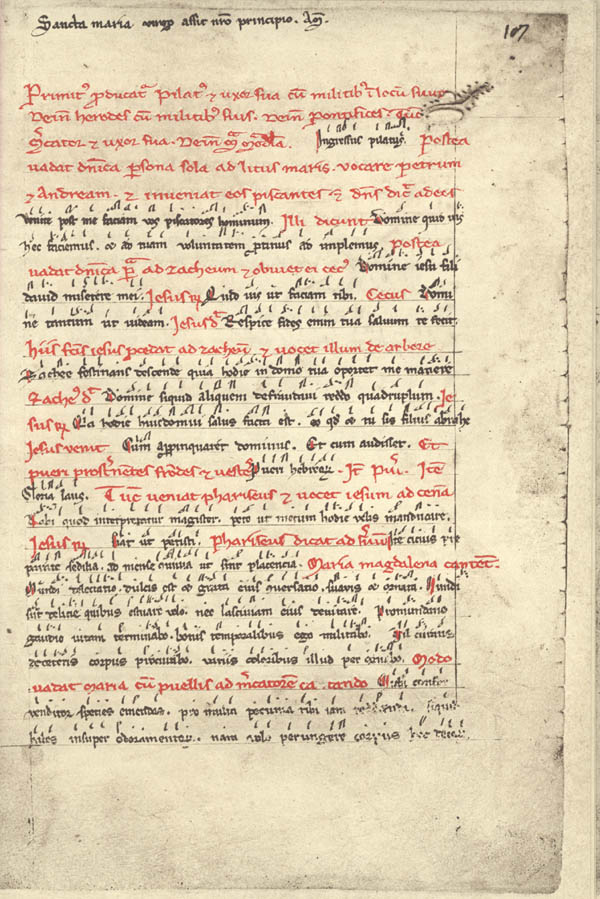 Sancta maria virgo assit nro principio. Am
107
Primit' producat' Pilat' et uxor sua cum militib' i locu suu
Dein herodes cu militib' suis. Dein Pontifices. Tuc
Mcator et uxor sua. Dein Ma Magdala. Ingressus pilatus. Postea
vadat dnica psona sola ad litus maris. vocare petrum
et Andream. et inveniat eos piscantes. et dns dicat ad eos
Venite post me faciam vos piscatores hominum. Illi dicunt Domine quid vis
hec faciemus. et ad tuam voluntatem protinus ad implemus. Postea
vadat dnica pa ad zacheum et obviet ei cec' Domine iesu fili
david miserere mei. Iesus R Quid vis ut faciam tibi. Cecus Domi
ne tantum ut videam. Iesus dt Respice fides enim tua salvum te fecit.
hiis fctis iesus pcedat ad zacheu. et vocet illum de arbore
Zachee festinans descende quia hodie in domo tua oportet me manere
Zache' dt Domine siquid aliquem defraudavi reddo quadruplum. Ie
sus R Quia hodie huic domui salus facta est. eo quod et tu sis filius abrahe
Iesus venit Cum appinquaret dominus. Et cum audisset. Et
pueri prosternentes frondes et vestes Pueri hebreor. It Pueri. Ite
Gloria laus. Tuc veniat phariseus et vocet iesum ad cena
Rabi quod interpretatur magister. peto ut mecum hodie velis manducare.
Iesus R fiat ut petisti. Phariseus dicat ad svum Ite cicius pre
parate sedilia. ad mense omnia ut sint placencia. Maria magdalena cantet.
Mundi delectatio. dulcis est et grata eius conversatio. suavis et ornata. Mundi
sunt delicie quibus estuare volo. nec lasciviam eius devitare. Pro mundano
gaudio vitam terminabo. bonis temporalibus ego militabo. Nil curans
de ceteris corpus procurabo. variis coloribus illud per ornabo. Modo
vadat maria cum puellis ad mcatorem cantando Michi confer
venditor species emendas. pro multa pecunia tibi iam reddenda. Siquid
habes insuper odoramentor. nam volo perungere corpus hoc decor.